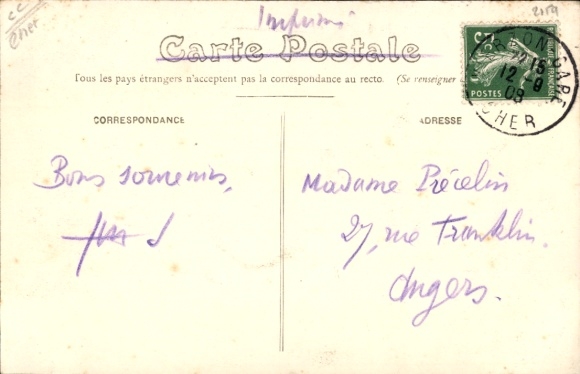 CC
Cher
Imprimé
2159
Carte Postale
Tous les pays étrangers n'acceptent pas la correspondance au recto. (Se renseigner
CORRESPONDANCE
ADRESSE
POSTES
15
12 9
08
GARE
CHER
Bons souvenirs,
Madame Précelin
27, rue Franklin.
Angers.